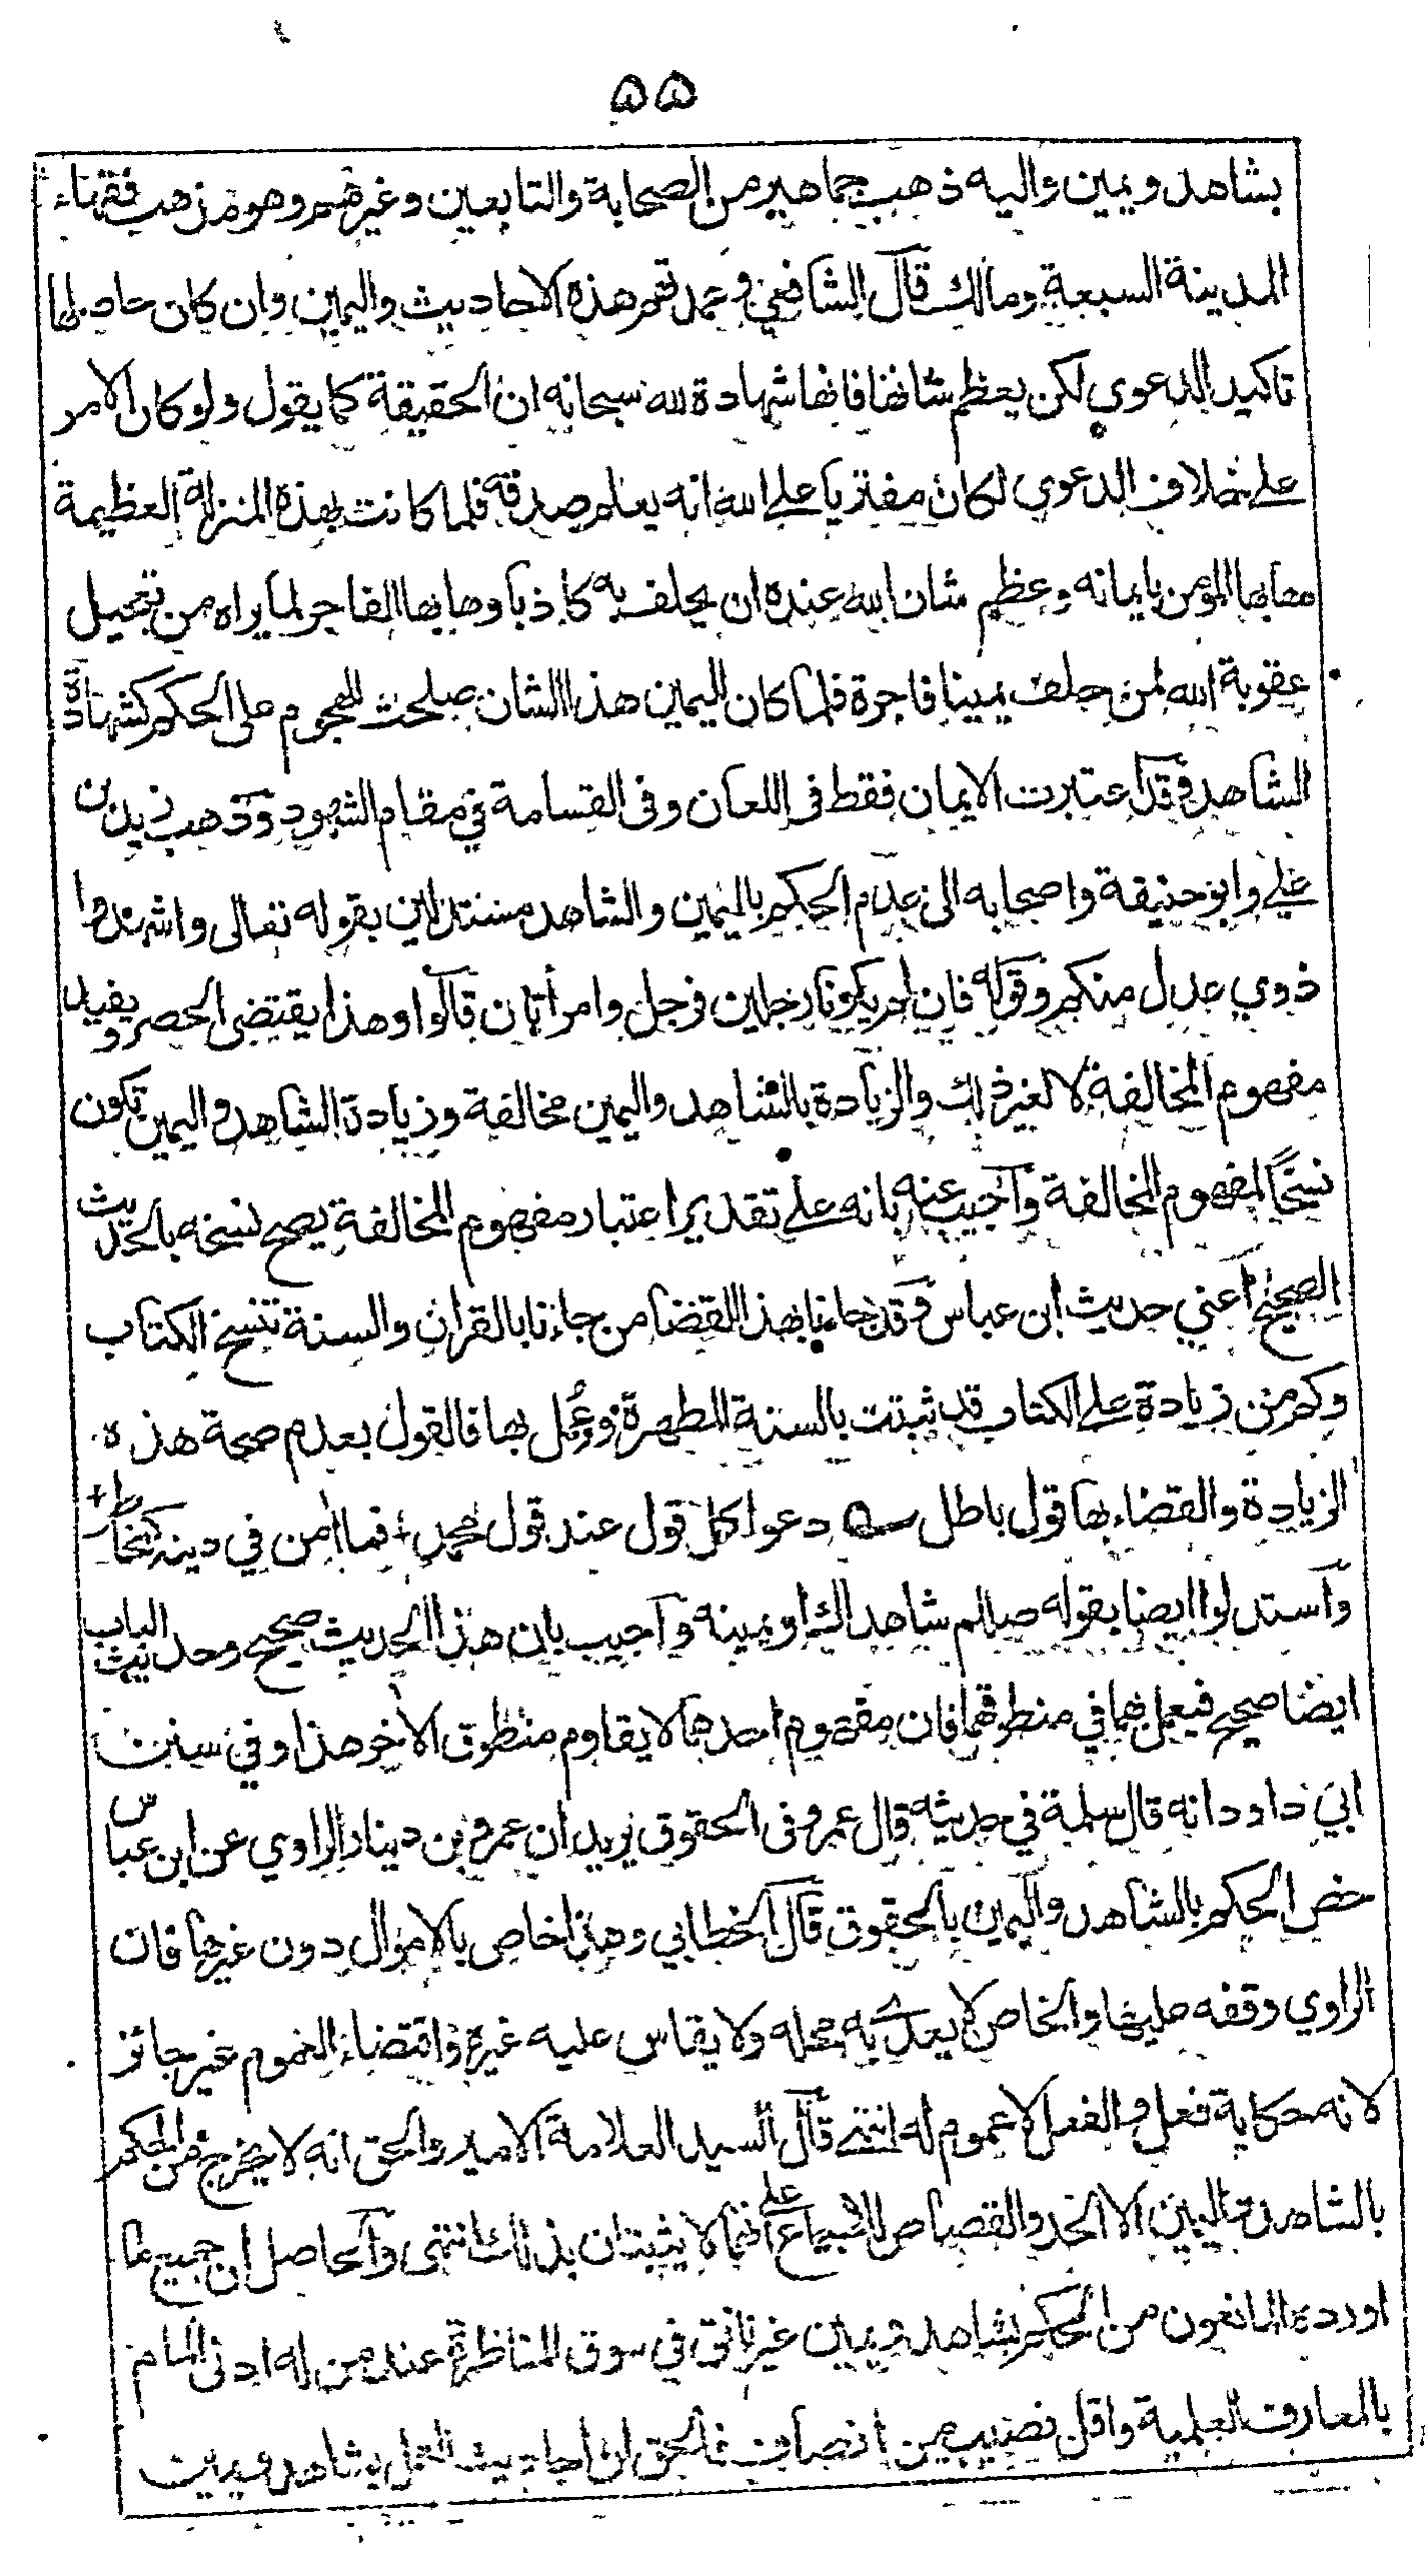 ۵۵
بشاهد ويمين واليه ذهب جماهير من الصحابة والتابعين وغيرهم وهو مذهب فقهاء
المدينة السبعة ومالك قال الشافعي وعمدتهم هذه الاحاديث واليمين وان كان حاصلها
تاكيد الدعوي لكن يعظم شانها فانها شهادة لله سبحانه ان الحقيقة كما يقول ولو كان الامر
على خلاف الدعوي لكان مفتريا على الله انه يعلم صدقه فلما كانت بهذه المنزلة العظيمة
هابها المؤمن بايمانه وعظم شان الله عنده ان يحلف به كاذبا وهابها الفاجر لما يراه من تعجيل
عقوبة الله لمن حلف يمينا فاجرة فلما كان اليمين هذا الشان صلحت للهجوم على الحكم كشهادة
الشاهد وقد اعتبرت الايمان فقط فى اللعان وفى القسامة في مقام الشهود وذهب زيد بن
علي وابو حنيفة واصحابه الى عدم الحكم باليمين والشاهد مستدلين بقوله تعالى واشهدوا
ذوي عدل منكم وقوله فان لم يكونا رجلين فرجل وامرأتان قالوا وهذا يقتضى الحصر ويفيد
مفهوم المخالفة لا لغير ذلك والزيادة بالشاهد واليمين مخالفة وزيادة الشاهد واليمين تكون
نسخًا لمفهوم المخالفة وأجيب عنه بانه على تقدير اعتبار مفهوم المخالفة يصح نسخه بالحديث
الصحيح أعني حديث ابن عباس وقد جاءنا بهذا القضا من جاءنا بالقران والسنة تنسخ الكتاب
وكم من زيادة على الكتاب قد ثبتت بالسنة المطهرة وعُمل بها فالقول بعدم صحة هذه
الزيادة والقضاء بها قول باطل ؎ دعوا كل قول عند قول محمد + فما آمن في دينه كمخاطر +
وأستدلوا ايضا بقوله صللم شاهداك او يمينه وأجيب بان هذا الحديث صحيح وحديث الباب
ايضا صحيح فيعمل بهما في منطوقهما فان مفهوم احدهما لا يقاوم منطوق الاخر هذا وفي سنن
ابي داود انه قال سلمة في حديثه قال عمرو فى الحقوق يريد ان عمرو بن دينار الراوي عن ابن عباس
خص الحكم بالشاهد واليمين بالحقوق قال الخطابي وهذا خاص بالاموال دون غيرها فان
الراوي وقفه عليها والخاص لا يعدى به محله ولا يقاس عليه غيره واقتضاء العموم غير جائز
لانه حكاية فعل والفعل لا عموم له انتهى قال السيد العلامة الامير والحق انه لا يخرج من الحكم
بالشاهد واليمين الا الحد والقصاص للاجماع على انهما لا يثبتان بذلك انتهى وألحاصل ان جميع ما
اورده المانعون من الحكم بشاهد ويمين غير نافق في سوق المناظرة عند من له ادنى المام
بالمعارف العلمية واقل نصيب من انصاف فالحق ان احاديث العمل بشاهد ويمين